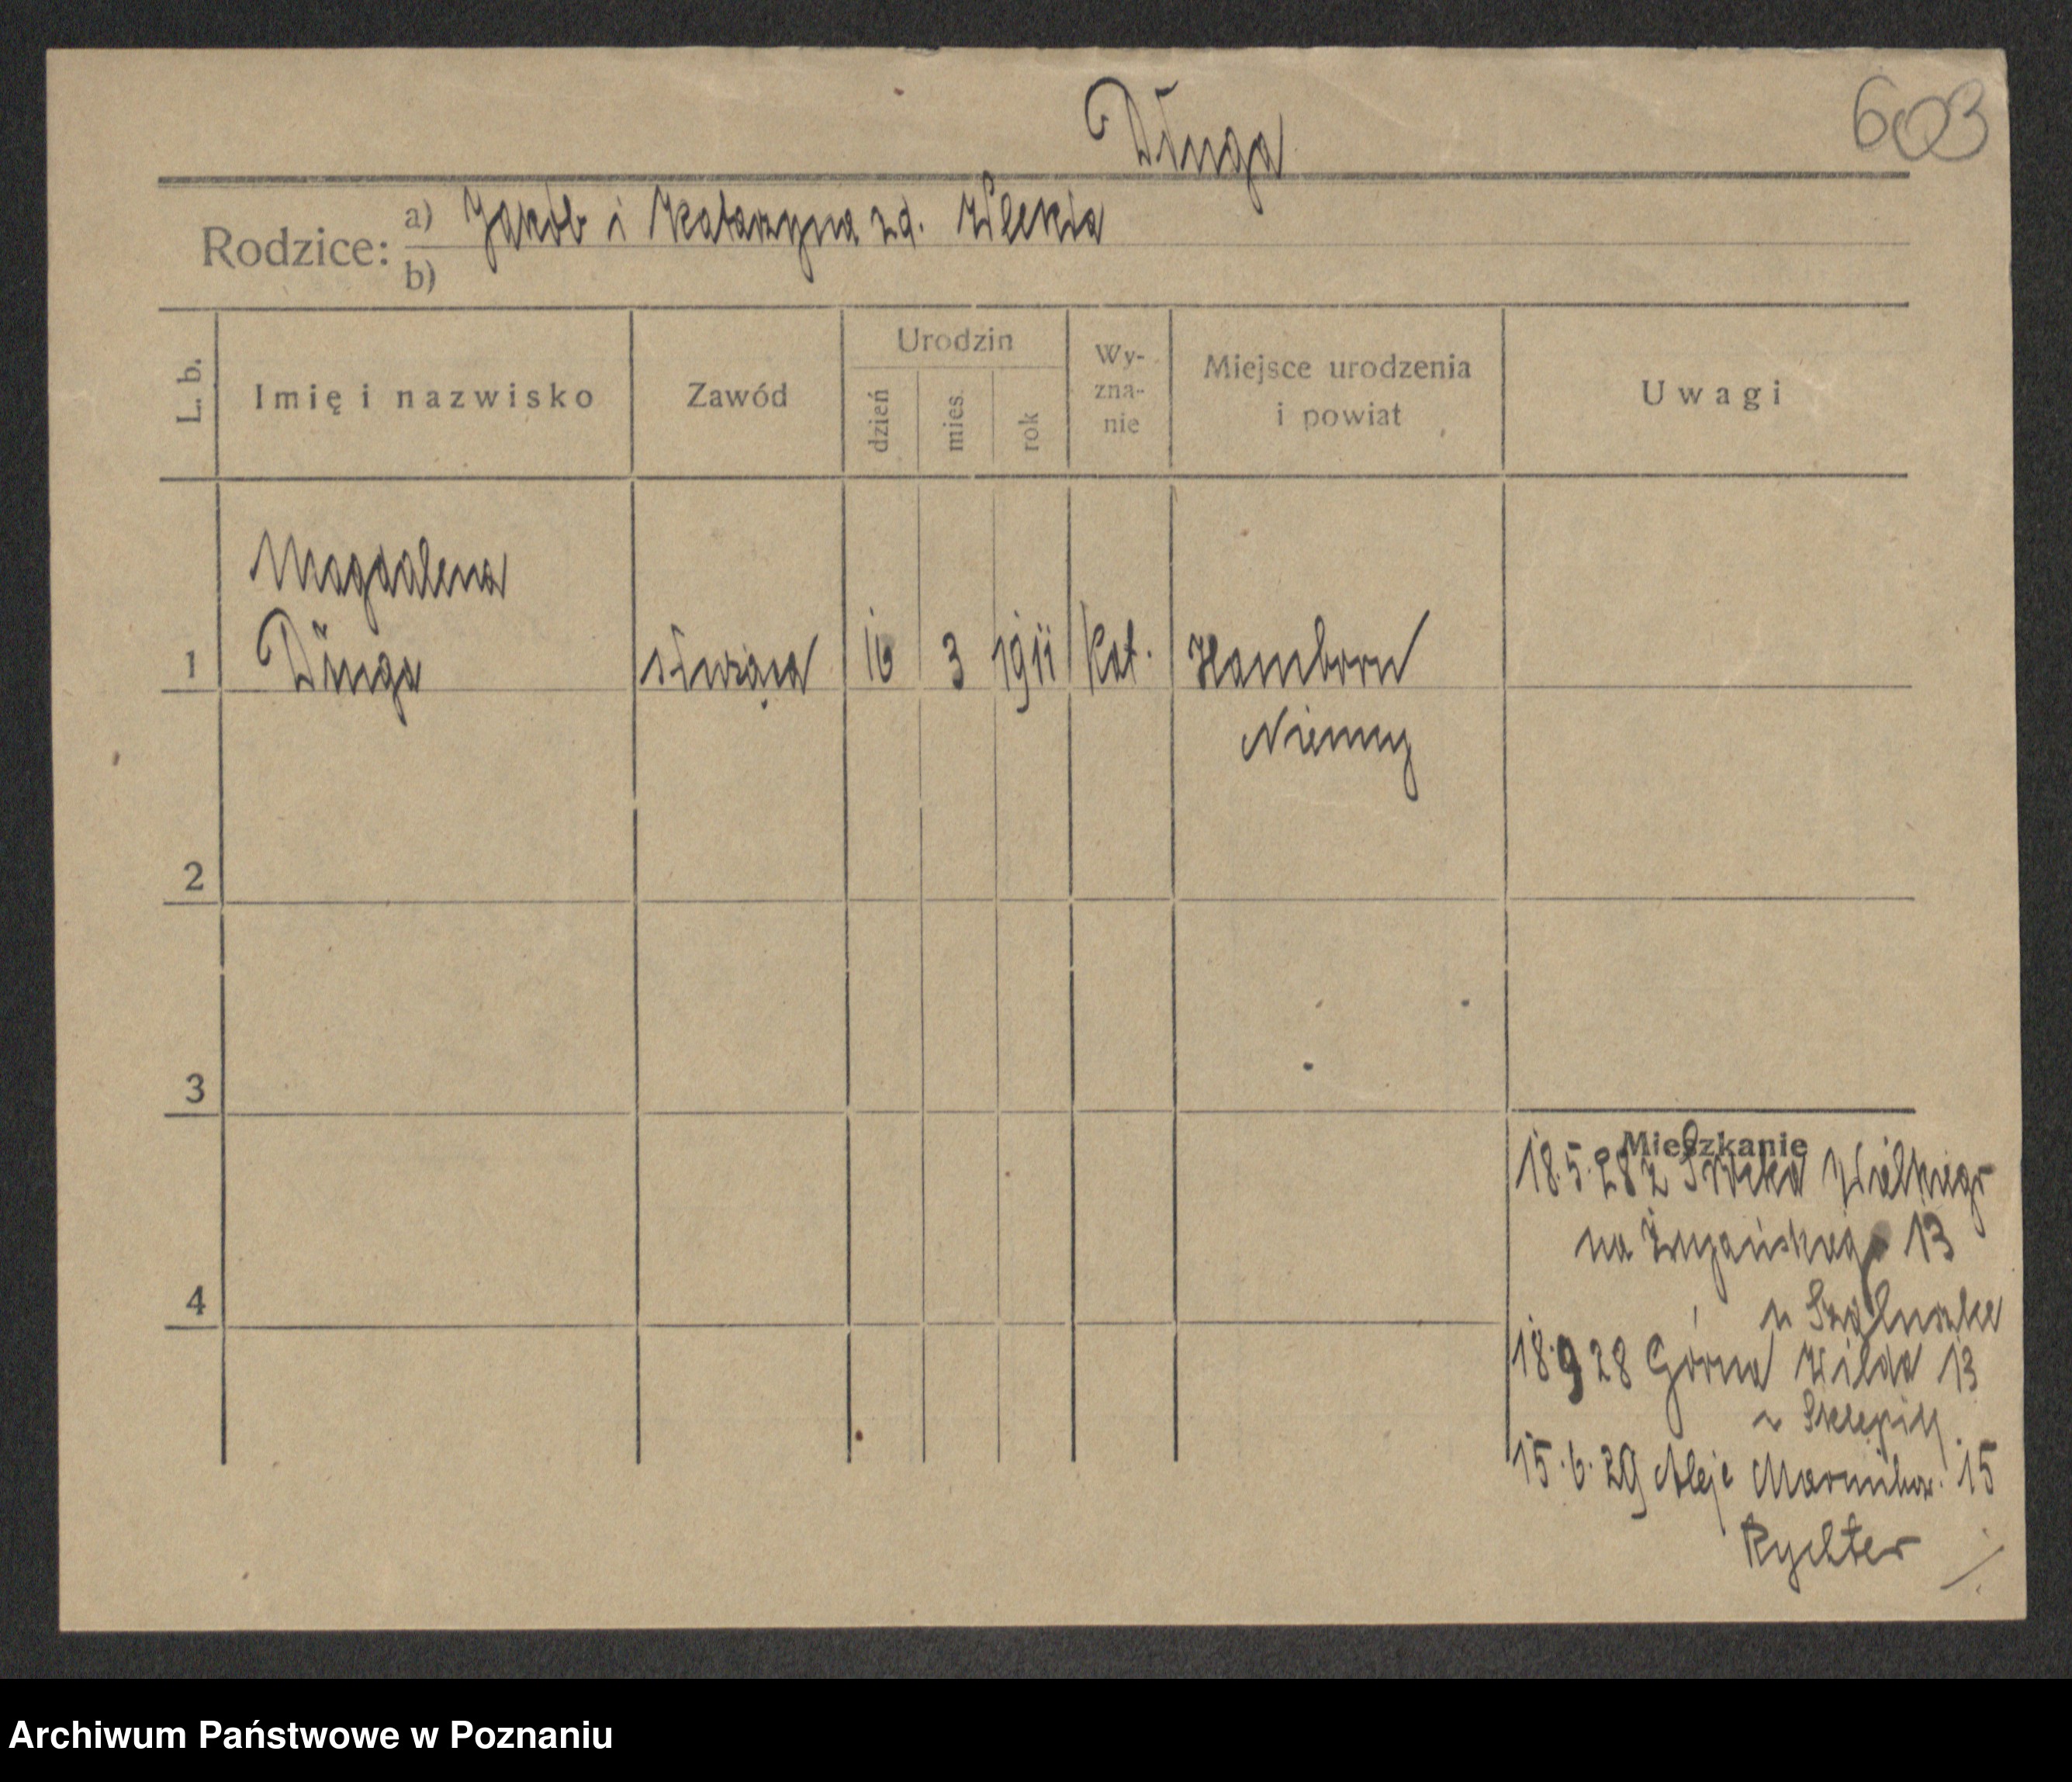 603
Długa
Rodzice: a) Jakób i Katarzyna zd.
b)
L. b.
Imię i nazwisko
Zawód
Urodzin
dzień
mies.
rok
Wy-
zna-
nie
Miejsce urodzenia
i powiat
Uwagi
Magdalena
1 Długa służąca 16 3 1911 Kat. Hamborn
Niemcy
2
3
Mieszkanie
18.5.28 z Wielkiego
na 13
4
18.9 28 Górna Wilda 13
15.6.29 Aleje 15
Rychter
Archiwum Państwowe w Poznaniu